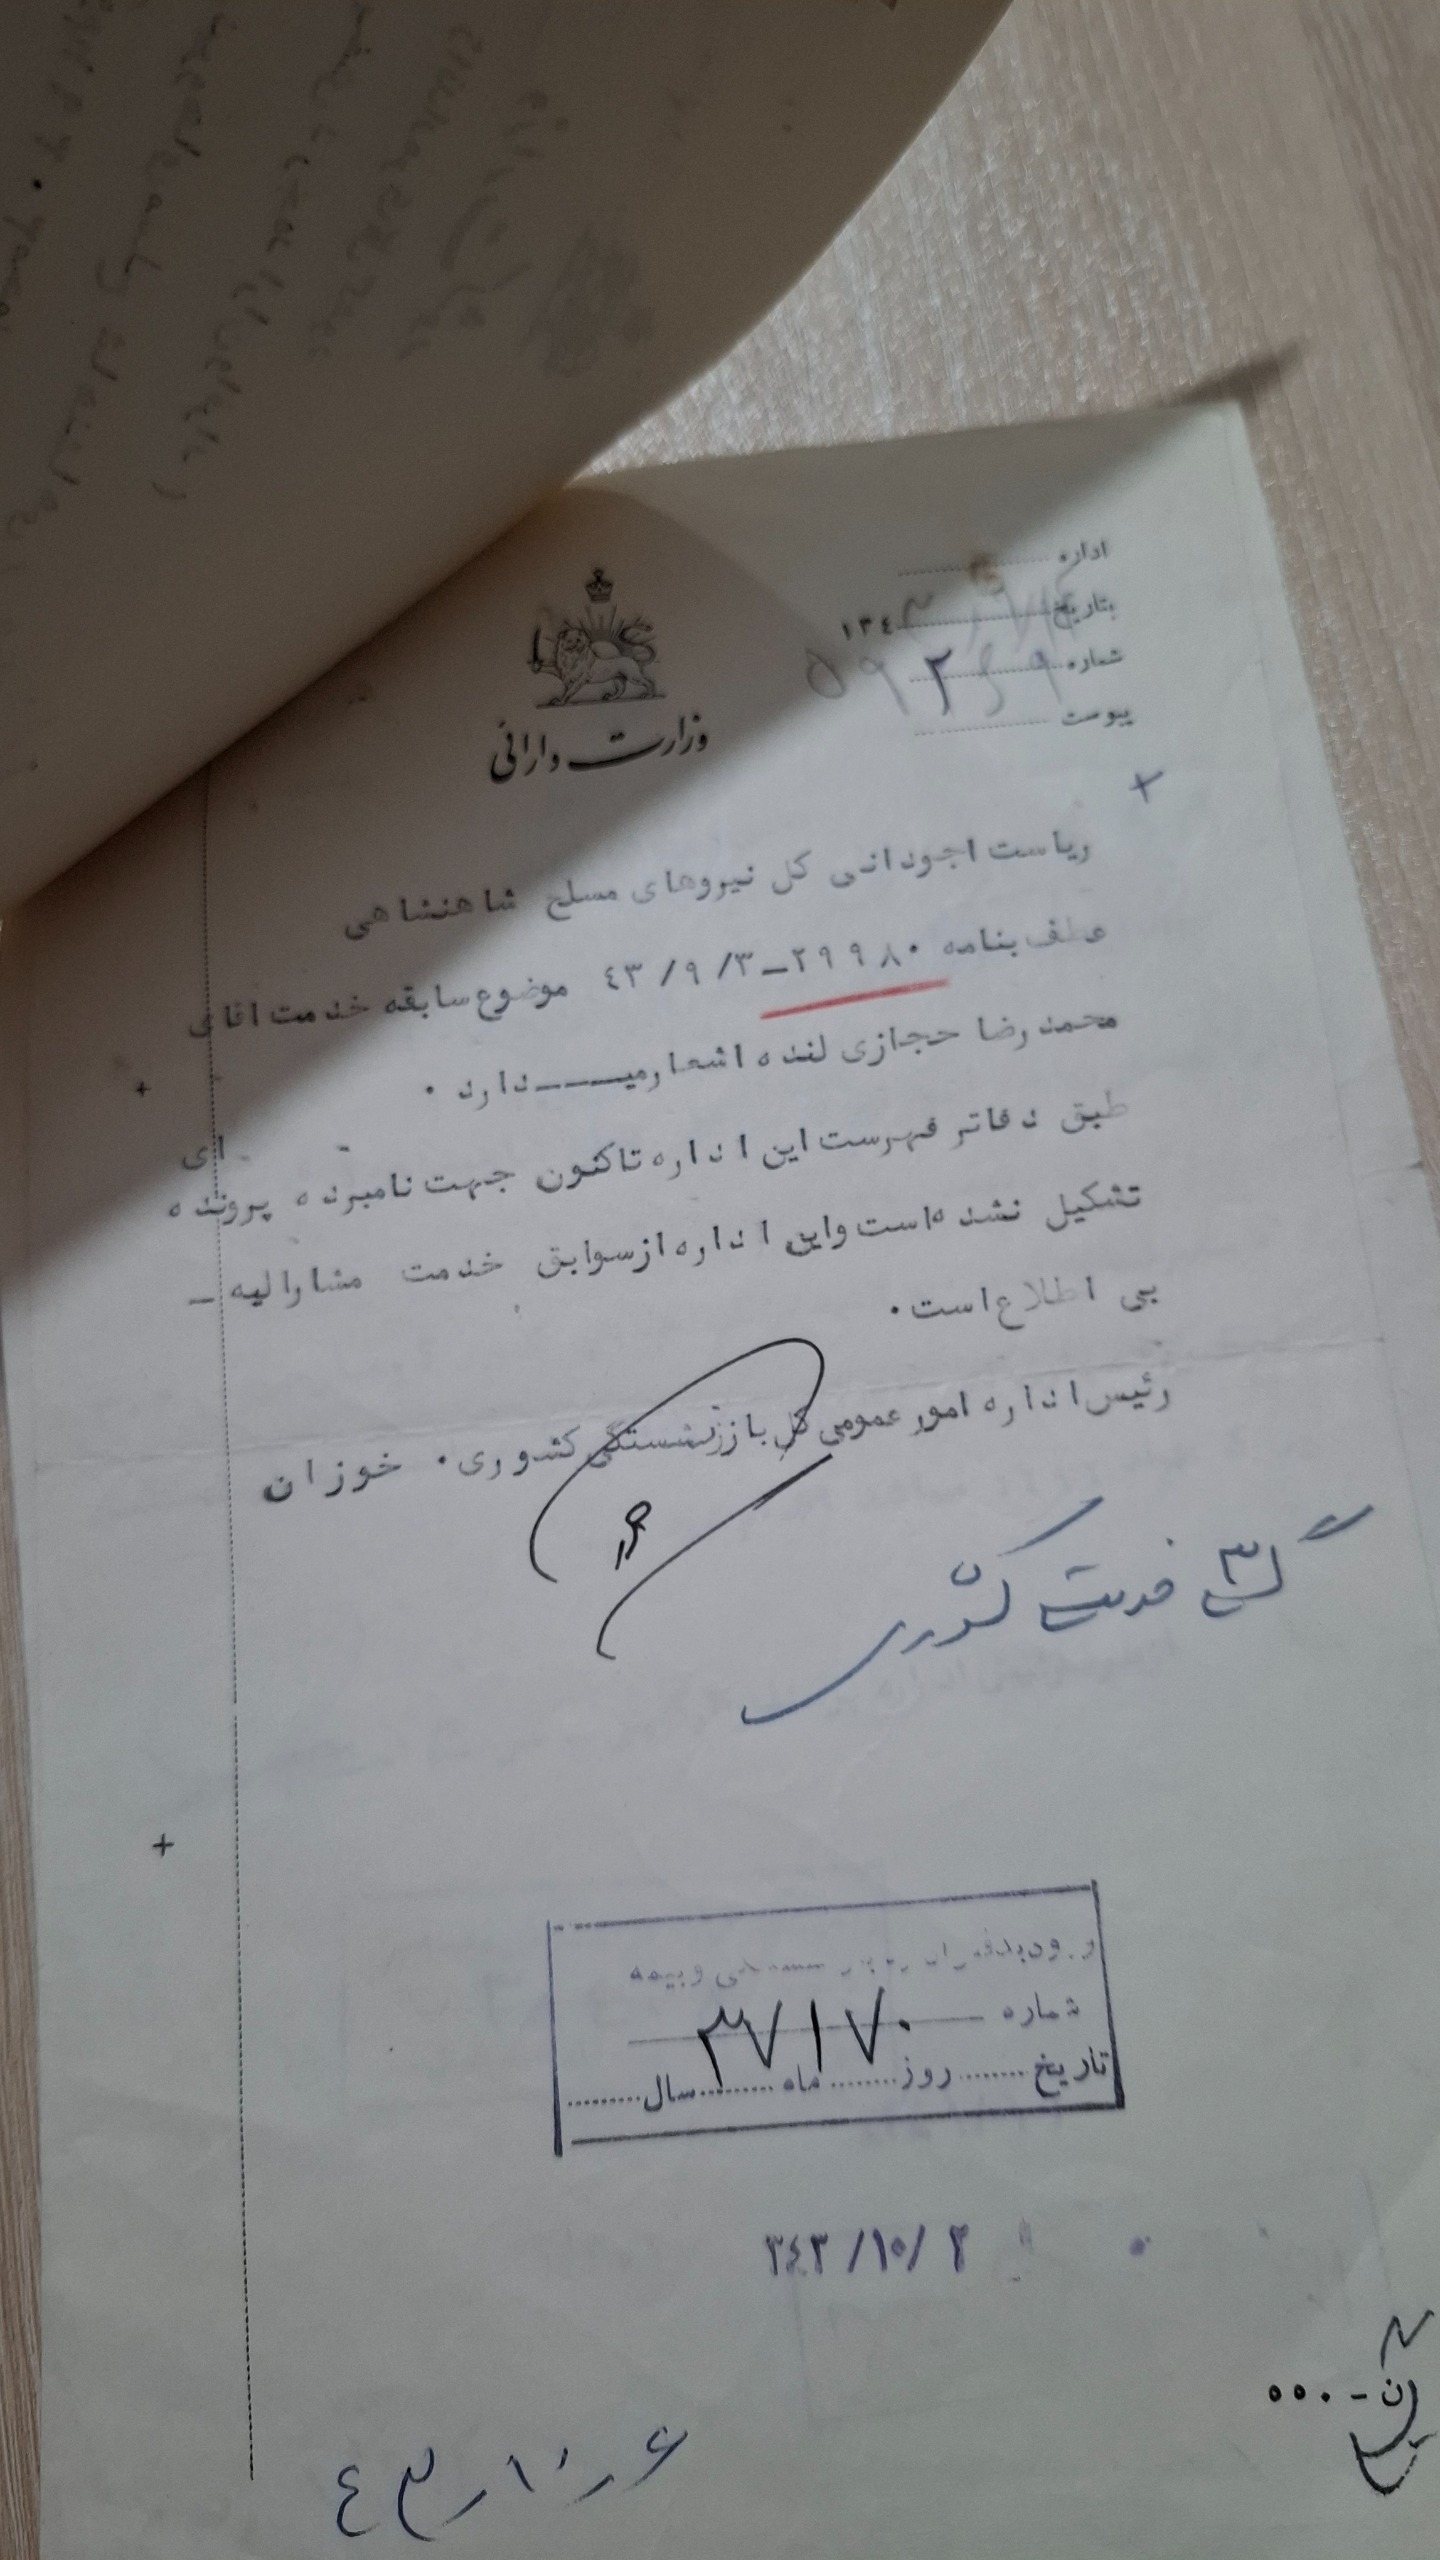 اداره
بتاریخ ۱۳٤
شماره
پیوست
وزارت دارائی
ریاست اجودانی کل نیروهای مسلح شاهنشاهی
عطف بنامه ۲۹۹۸۰ـ ٤۳/۹/۳ موضوع سابقه خدمت اقای
محمدرضا حجازی لنده اشعار میـــدارد .
طبق دفاتر فهرست این اداره تاکنون جهت نامبرده پرونده ای
تشکیل نشده است و این اداره از سوابق خدمت مشارالیه ـ
بی اطلاع است .
رئیس اداره امور عمومی کل بازنشستگی کشوری . خوزان
خدمت کشوری
و بیمه
شماره ۳۷۱۷۰
تاریخ ........ روز ........ ماه ........ سال ........
۳٤۳/۱۰/۲